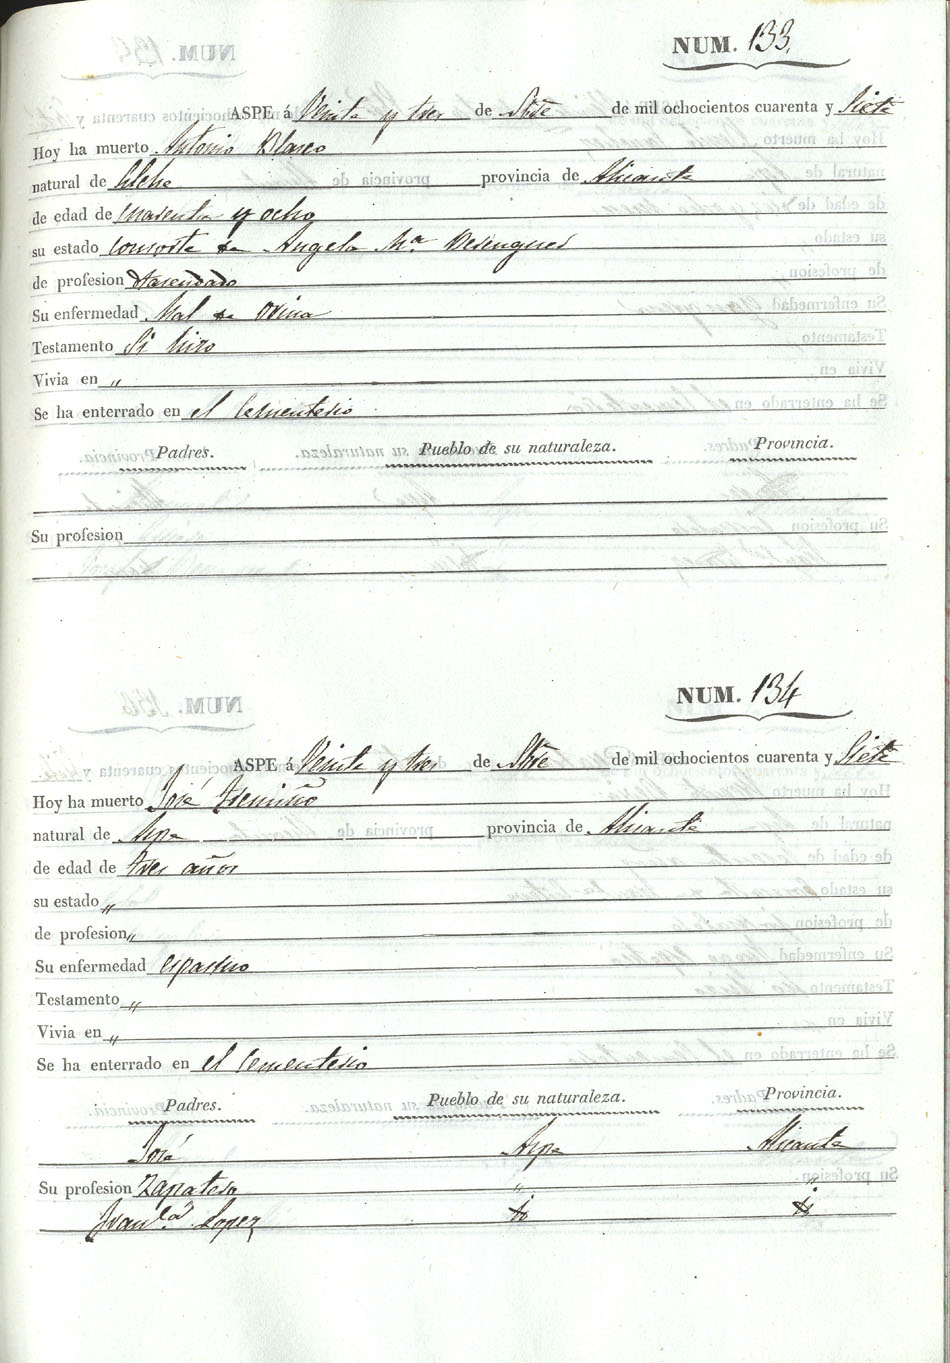 NUM. 133.
ASPE á Veinte y tres de Stbre de mil ochocientos cuarenta y Siete
Hoy ha muerto Antonio Blasco
natural de Elche provincia de Alicante
de edad de cuarenta y ocho
su estado consorte de Angela Mª
de profesion Hasendado
Su enfermedad Mal de orina
Testamento Si hizo
Vivia en „
Se ha enterrado en el Cementerio
Padres. Pueblo de su naturaleza. Provincia.
Su profesion
NUM. 134
ASPE á Veinte y tres de Stbre de mil ochocientos cuarenta y Siete
Hoy ha muerto José
natural de Aspe provincia de Alicante
de edad de tres años
su estado „
de profesion „
Su enfermedad espasmo
Testamento „
Vivia en „
Se ha enterrado en el Cementerio
Padres. Pueblo de su naturaleza. Provincia.
José Aspe Alicante
Su profesion Zapatero „ „
Franca Lopez